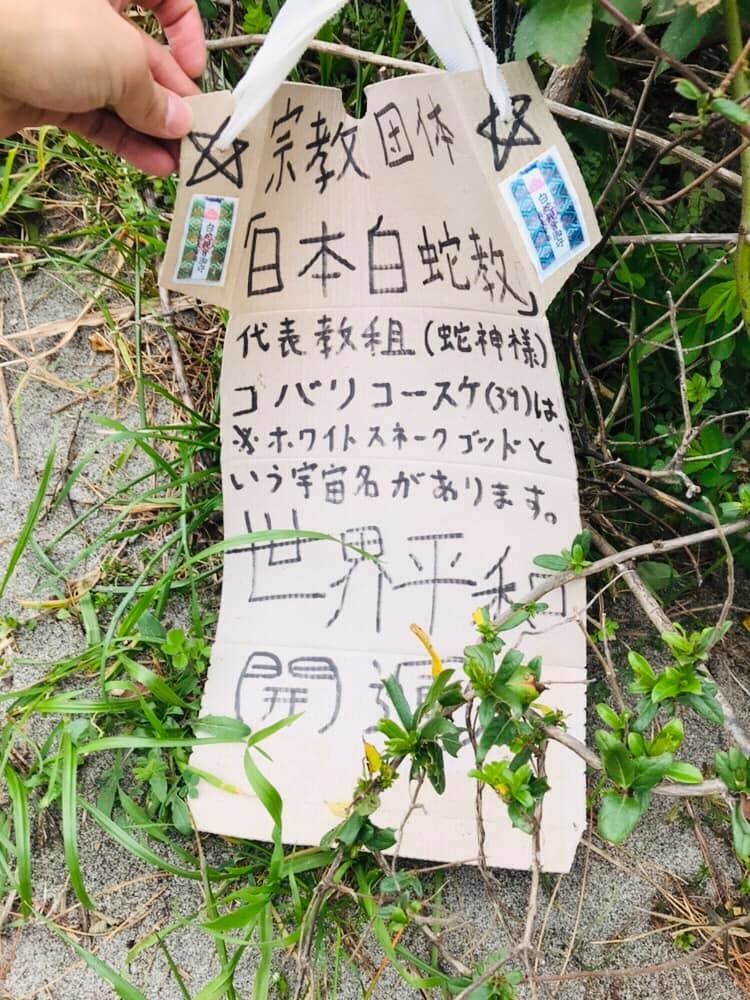 宗教団体
「日本白蛇教」
代表教組(蛇神様)
コバリコースケ(39)は、
※ホワイトスネークゴッドと
いう宇宙名があります。
世界平和
開運